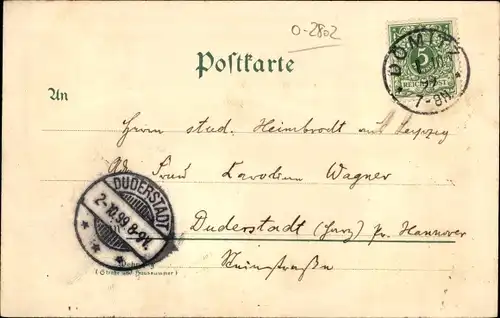 O-2802
Postkarte
DÖMITZ
99
7-8N.
5
REICHSPOST
An
Herrn stud. Heimbrodt aus Leipzig
Ad. Frau Wagner
DUDERSTADT
2.10.99.8-9V.
Duderstadt (Harz) pr. Hannover
Steinstraße
(Straße und Hausnummer)